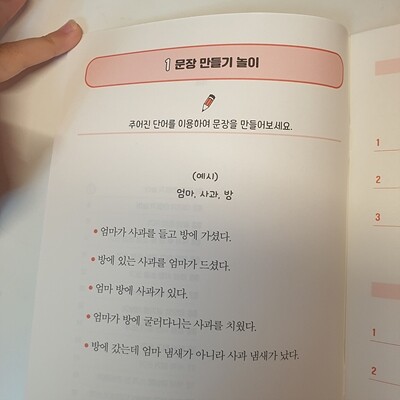 1 문장 만들기 놀이
주어진 단어를 이용하여 문장을 만들어보세요.
(예시)
엄마, 사과, 방
• 엄마가 사과를 들고 방에 가셨다.
• 방에 있는 사과를 엄마가 드셨다.
• 엄마 방에 사과가 있다.
• 엄마가 방에 굴러다니는 사과를 치웠다.
• 방에 갔는데 엄마 냄새가 아니라 사과 냄새가 났다.
1
2
3
1
2